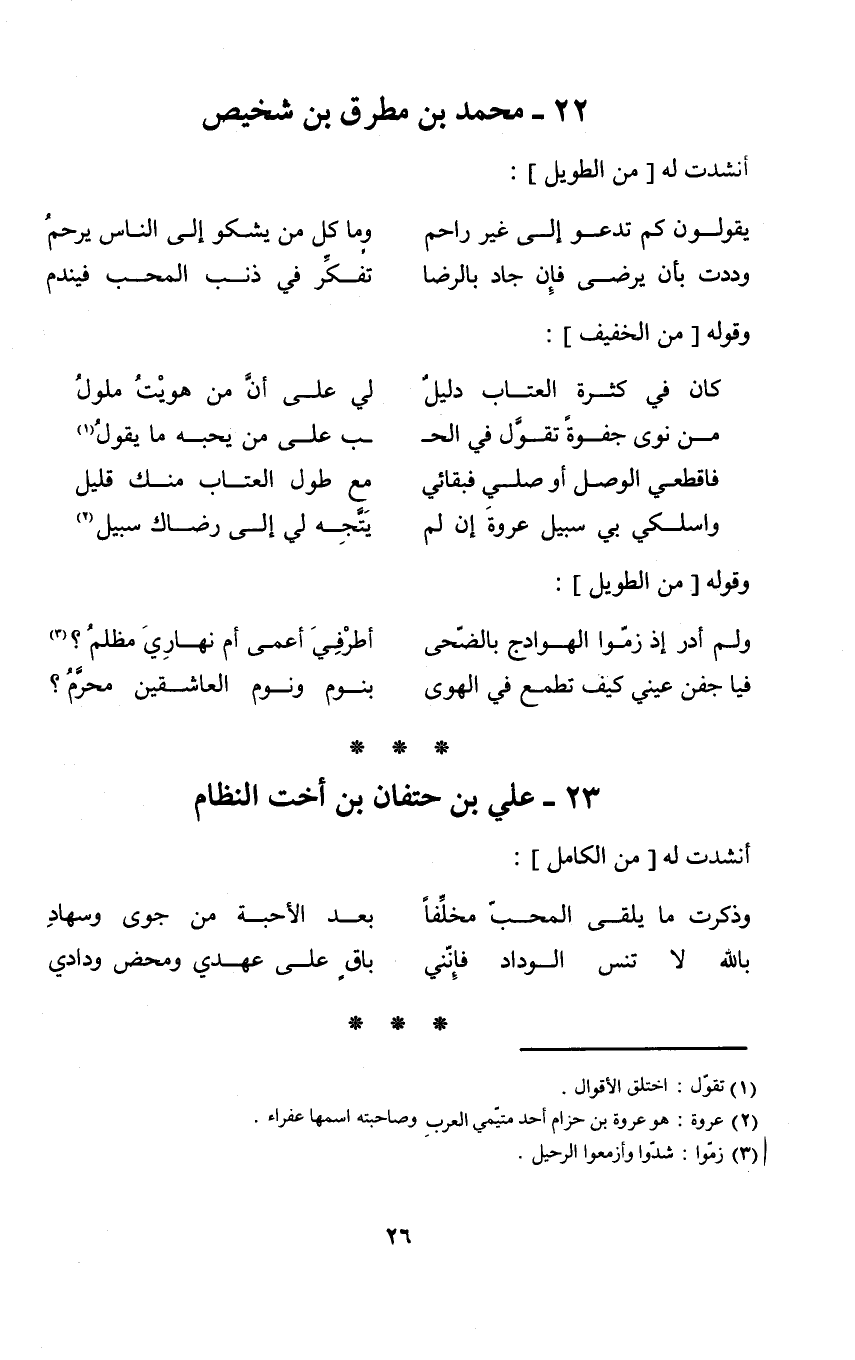 ٢٢ ـ محمد بن مطرق بن شخيص
أنشدت له [ من الطويل ] :
يقولـون كم تدعـو إلـى غير راحم وما كل من يشكو إلى النـاس يرحمُ
وددت بأن يرضـى فإن جاد بالرضا تفـكِّر في ذنـب المحـب فيندم
وقوله [ من الخفيف ] :
كان في كثـرة العتـاب دليلٌ لي علـى أنَّ من هويْتُ ملولُ
مـن نوى جفـوةً تقـوَّل في الحـ ـب علـى من يحبـه ما يقولُ(١)
فاقطعـي الوصـل أو صلـي فبقائي مع طول العتـاب منـك قليل
واسلـكي بي سبيل عروةَ إن لم يَتَّجِـه لي إلـى رضـاك سبيل(٢)
وقوله [ من الطويل ] :
ولـم أدر إذ زمّـوا الهـوادج بالضّحى أطرْفِـيَ أعمـى أم نهـارِيَ مظلمُ ؟(٣)
فيا جفن عيني كيف تطمـع في الهوى بنـوم ونـوم العاشـقين محرَّمُ ؟
* * *
٢٣ ـ علي بن حتفان بن أخت النظام
أنشدت له [ من الكامل ] :
وذكرت ما يلقـى المحـبّ مخلِّفاً بعـد الأحبـة من جوى وسهادِ
بالله لا تنس الـوداد فإنّني باقٍ علـى عهـدي ومحض ودادي
* * *
(١) تقوّل : اختلق الأقوال .
(٢) عروة : هو عروة بن حزام أحد متيّمي العرب وصاحبته اسمها عفراء .
(٣) زمّوا : شدّوا وأزمعوا الرحيل .
٢٦